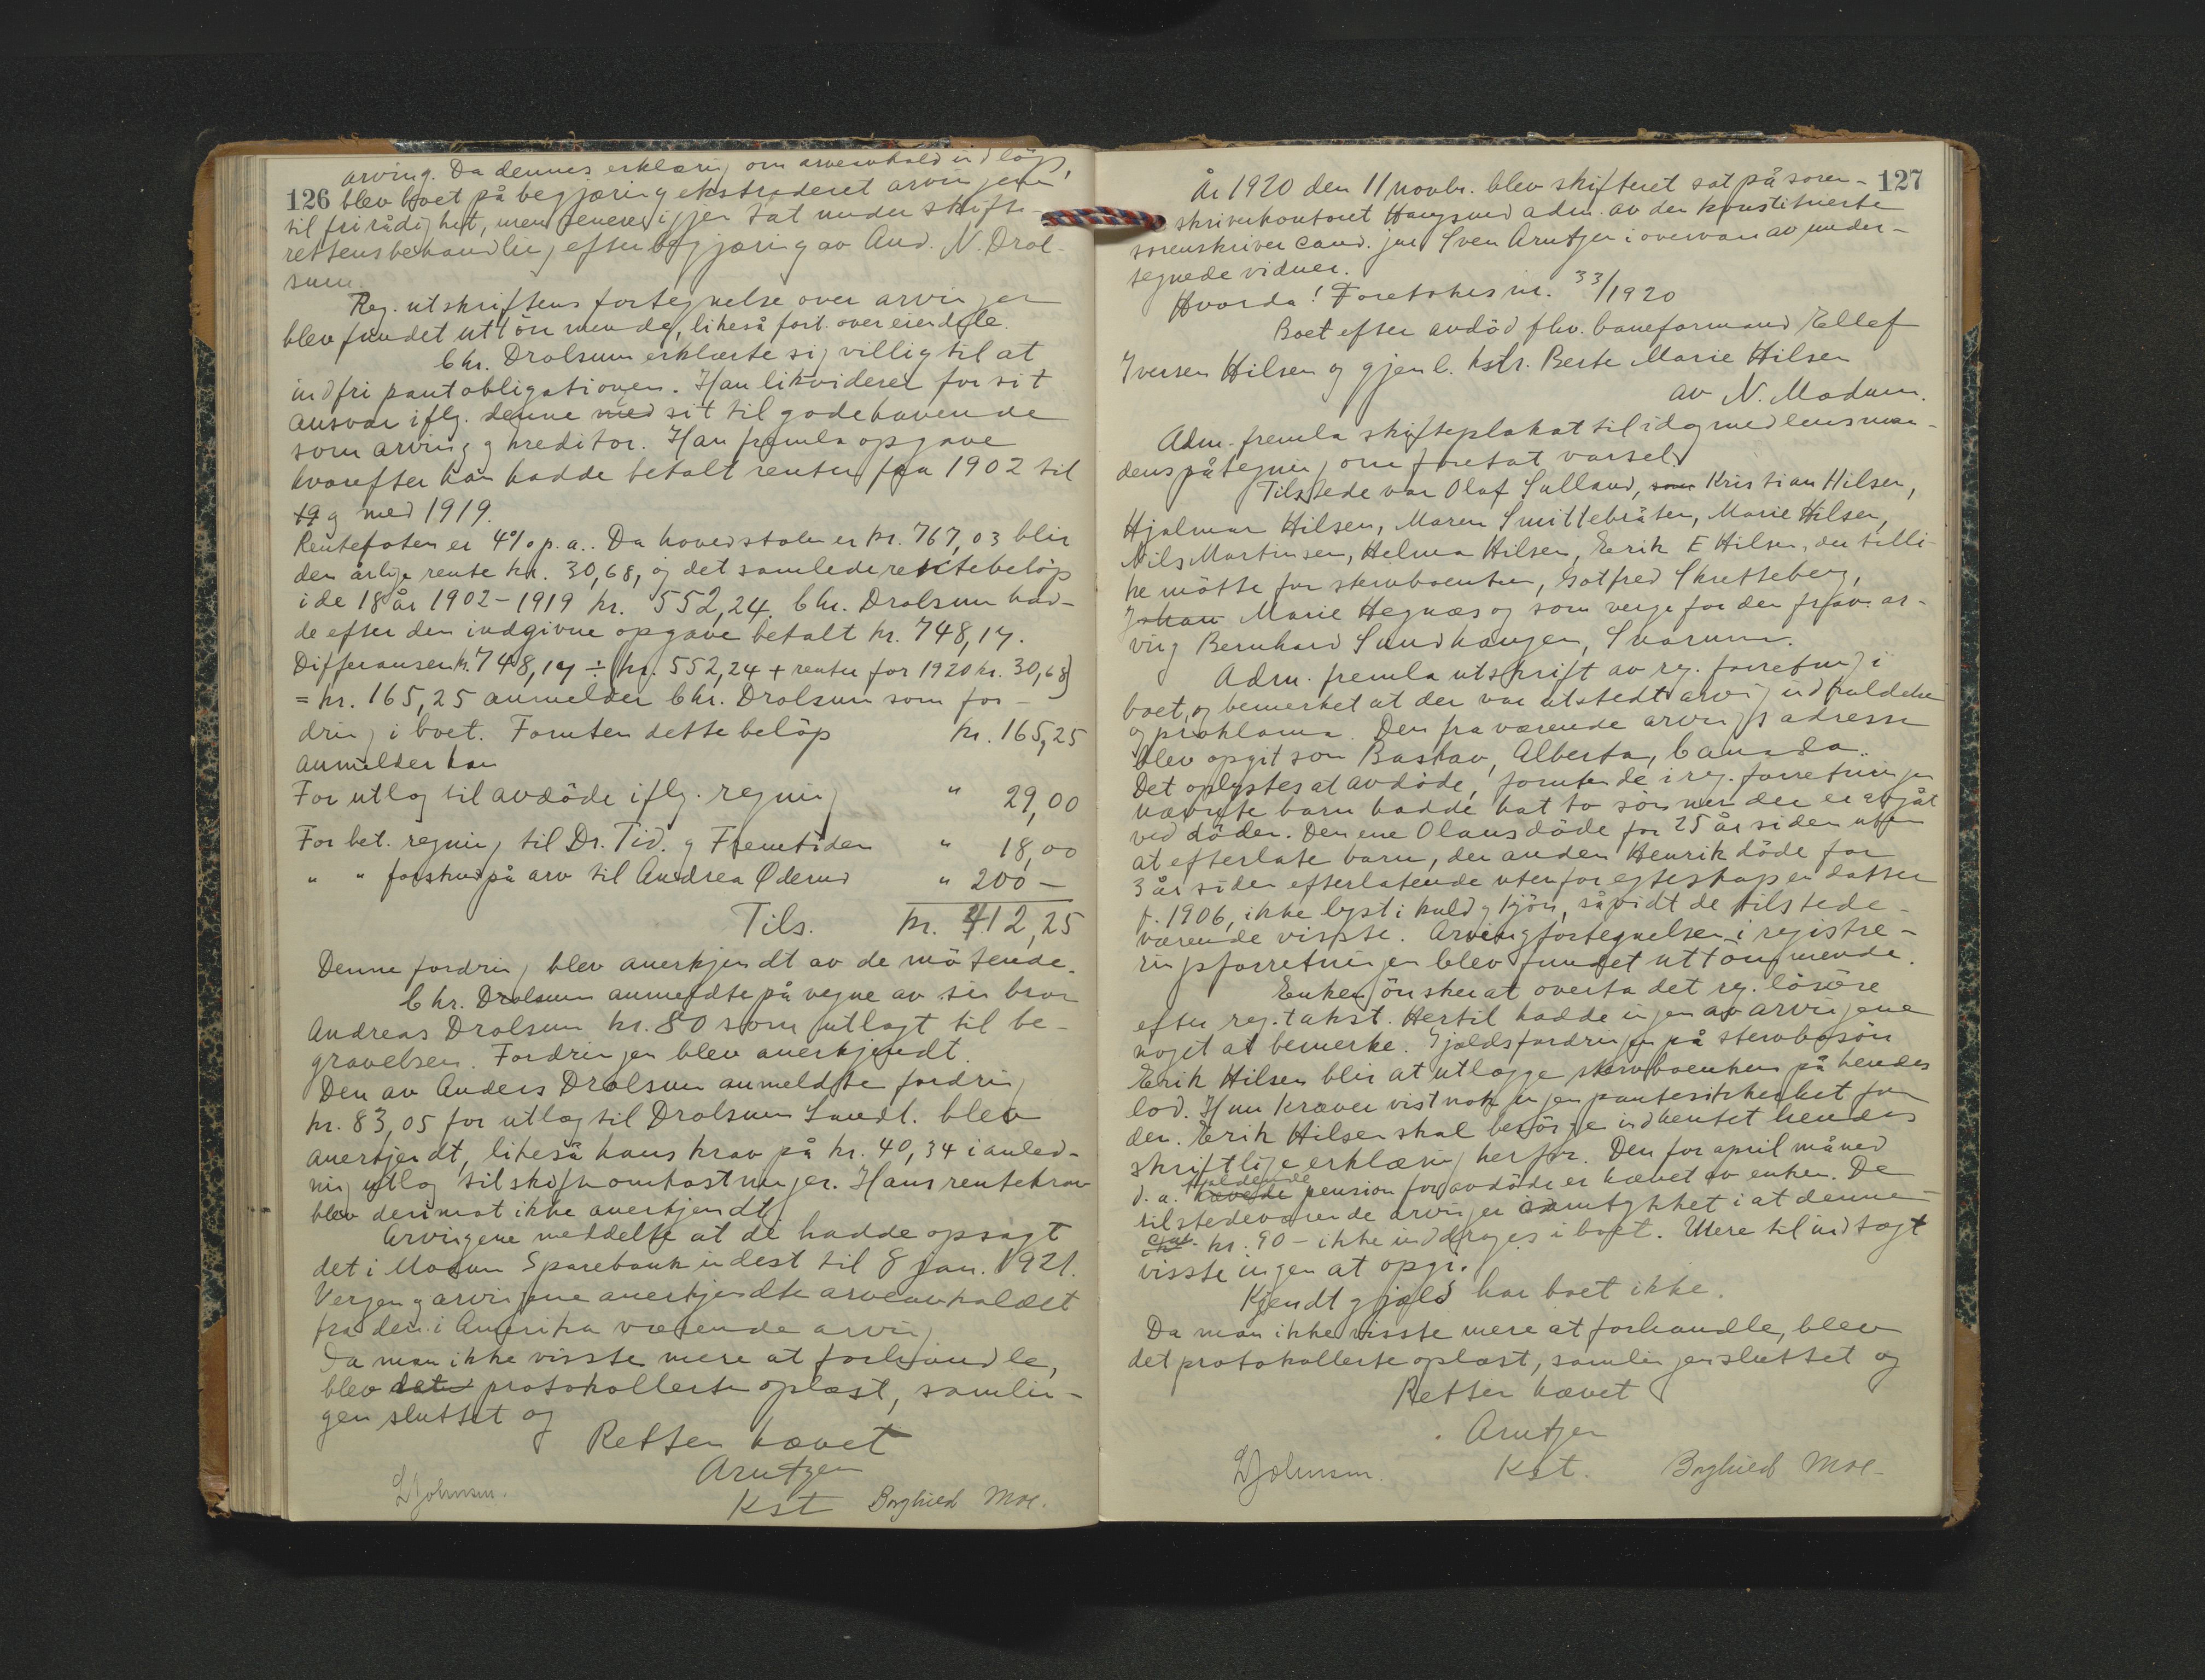 126
arving. Da dennes erklæring om arveavkald indløp,
blev boet på begjæring ekstraderet arvingene
til fri rådighet, men senere igjen tat under skifte-
rettens behandling efter begjæring av And. N. Drol-
sum.
Reg. utskriftens fortegnelse over arvinger
blev fundet uttömmende, likeså fort. over eiendele.
Chr. Drolsum erklærte sig villig til at
indfri pantobligationen. Han likviderer for sit
ansvar iflg. denne med sit tilgodehavende
som arving og kreditor. Han fremla opgave
hvorefter han hadde betalt renter fra 1902 til
19 og med 1919.
Rentefoten er 4% p.a.. Da hovedstolen er kr. 767,03 blir
den årlige rente kr. 30,68, og det samlede rentebeløp
i de 18 år 1902-1919 kr. 552,24. Chr. Drolsum had-
de efter den indgivne opgave betalt kr. 748,17.
Differansen kr. 748,17 ÷ (kr. 552,24 + renter for 1920 kr. 30,68)
= kr. 165,25 anmelder Chr. Drolsum som for-
dring i boet. Foruten dette beløp kr. 165,25
anmelder han
For utlæg til avdöde iflg. regning " 29,00
For bet. regning til Dr. Tid. og Fremtiden " 18,00
" " forskud på arv til Andrea Øderud " 200 –
Tils. kr. 412,25
Denne fordring blev anerkjendt av de mötende.
Chr. Drolsum anmeldte på vegne av sin bror
Andreas Drolsum kr. 80 som utlagt til be-
gravelsen. Fordringen blev anerkjendt.
Den av Anders Drolsum anmeldte fordring
kr. 83,05 for utlæg til Drolsum Landh. blev
anerkjendt, likeså hans krav på kr. 40,34 i anled-
ning utlæg til skifteomkostninger. Hans rentekrav
blev derimot ikke anerkjendt.
Arvingene meddelte at de hadde opsagt
det i Modum Sparebank indest. til 8 jan. 1921.
Vergen og arvingene anerkjendte arveavkaldet
fra den i Amerika værende arving.
Da man ikke visste mere at forhandle,
blev det protokollerte oplæst, samlin-
gen sluttet og
Retten hævet
Arntzen
Kst
L Johnsen. Borghild Moe.
127
År 1920 den 11 novbr. blev skifteret sat på soren-
skriverkontoret Haugsund adm. av den konstituerte
sorenskriver cand. jur Sven Arntzen i overvær av under-
tegnede vidner.
Hvorda! Foretokes nr. 33/1920
Boet efter avdöd fhv. baneformand Ellef
Iversen Hilsen og gjenl. hstr. Berte Marie Hilsen
av N. Modum.
Adm. fremla skifteplakat til idag med lensman-
dens påtegning om foretat varsel.
Tilstede var Olaf Sulland, som Kristian Hilsen,
Hjalmar Hilsen, Maren Smittebråten, Marie Hilsen,
Nils Martinsen, Helma Hilsen, Erik E Hilsen, der tilli-
ke mötte for stervboenken, Gotfred Skretteberg,
Johan Marie Hegnæs og som verge for den frav. ar-
ving Bernhard Sundhaugen, Snarum.
Adm. fremla utskrift av reg. forretning i
boet, og bemerket at der var utstedt arvingindkaldelse
og proklama. Den fraværende arvings adresse
blev opgit som Bashaw, Alberta, Canada.
Det oplystes at avdöde, foruten de i reg. forretningen
nævnte barn hadde hat to sönner der er avgåt
ved döden. Den ene Olaus döde for 25 år siden uten
at efterlate barn, den anden Henrik döde for
3 år siden efterlatende utenfor egteskap en datter
f. 1906, ikke lyst i kuld og kjön, såvidt de tilstede-
værende visste. Arvingfortegnelsen i registre-
ringsforretningen blev fundet uttömmende.
Enken önsker at overta det reg. lösöre
efter reg. takst. Hertil hadde ingen av arvingene
noget at bemerke. Gjældsfordringen på stervbosön
Erik Hilsen blir at utlægge stervboenken på hendes
lod. Hun kræver vistnok ingen pantesikkerhet for
den. Erik Hilsen skal besörge indhentet hendes
skriftlige erklæring herfor. Den for april måned
d. a. hævede gjældende pension for avdöde er hævet av enken. De
tilstedeværende arvinger samtykket i at denne
ca. kr. 90 – ikke inddrages i boet. Mere til indtægt
visste ingen at opgi.
Kjendt gjæld har boet ikke.
Da man ikke visste mere at forhandle, blev
det protokollerte oplæst, samlingen sluttet og
Retten hævet
Arntzen
L Johnsen. Kst. Borghild Moe.